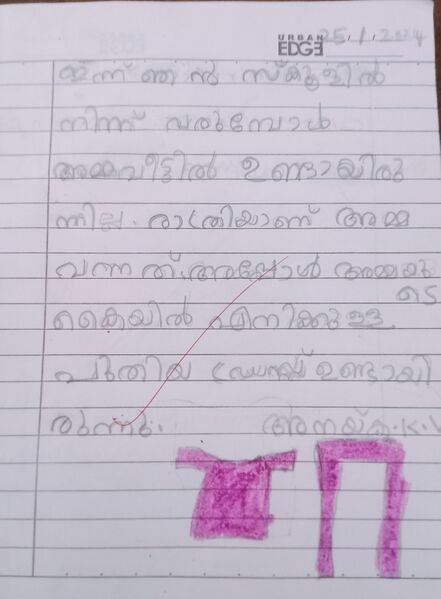 URBAN
EDGE
25/1/2024
ഇന്ന് ഞാൻ സ്കൂളിൽ
നിന്ന് വരുമ്പോൾ
അമ്മവീട്ടിൽ ഉണ്ടായിരു
ന്നില്ല. രാത്രിയാണ് അമ്മ
വന്നത്. അപ്പോൾ അമ്മയു
ടെ
കൈയിൽ എനിക്കുള്ള
പുതിയ ഡ്രസ്സ് ഉണ്ടായി
രുന്നു.